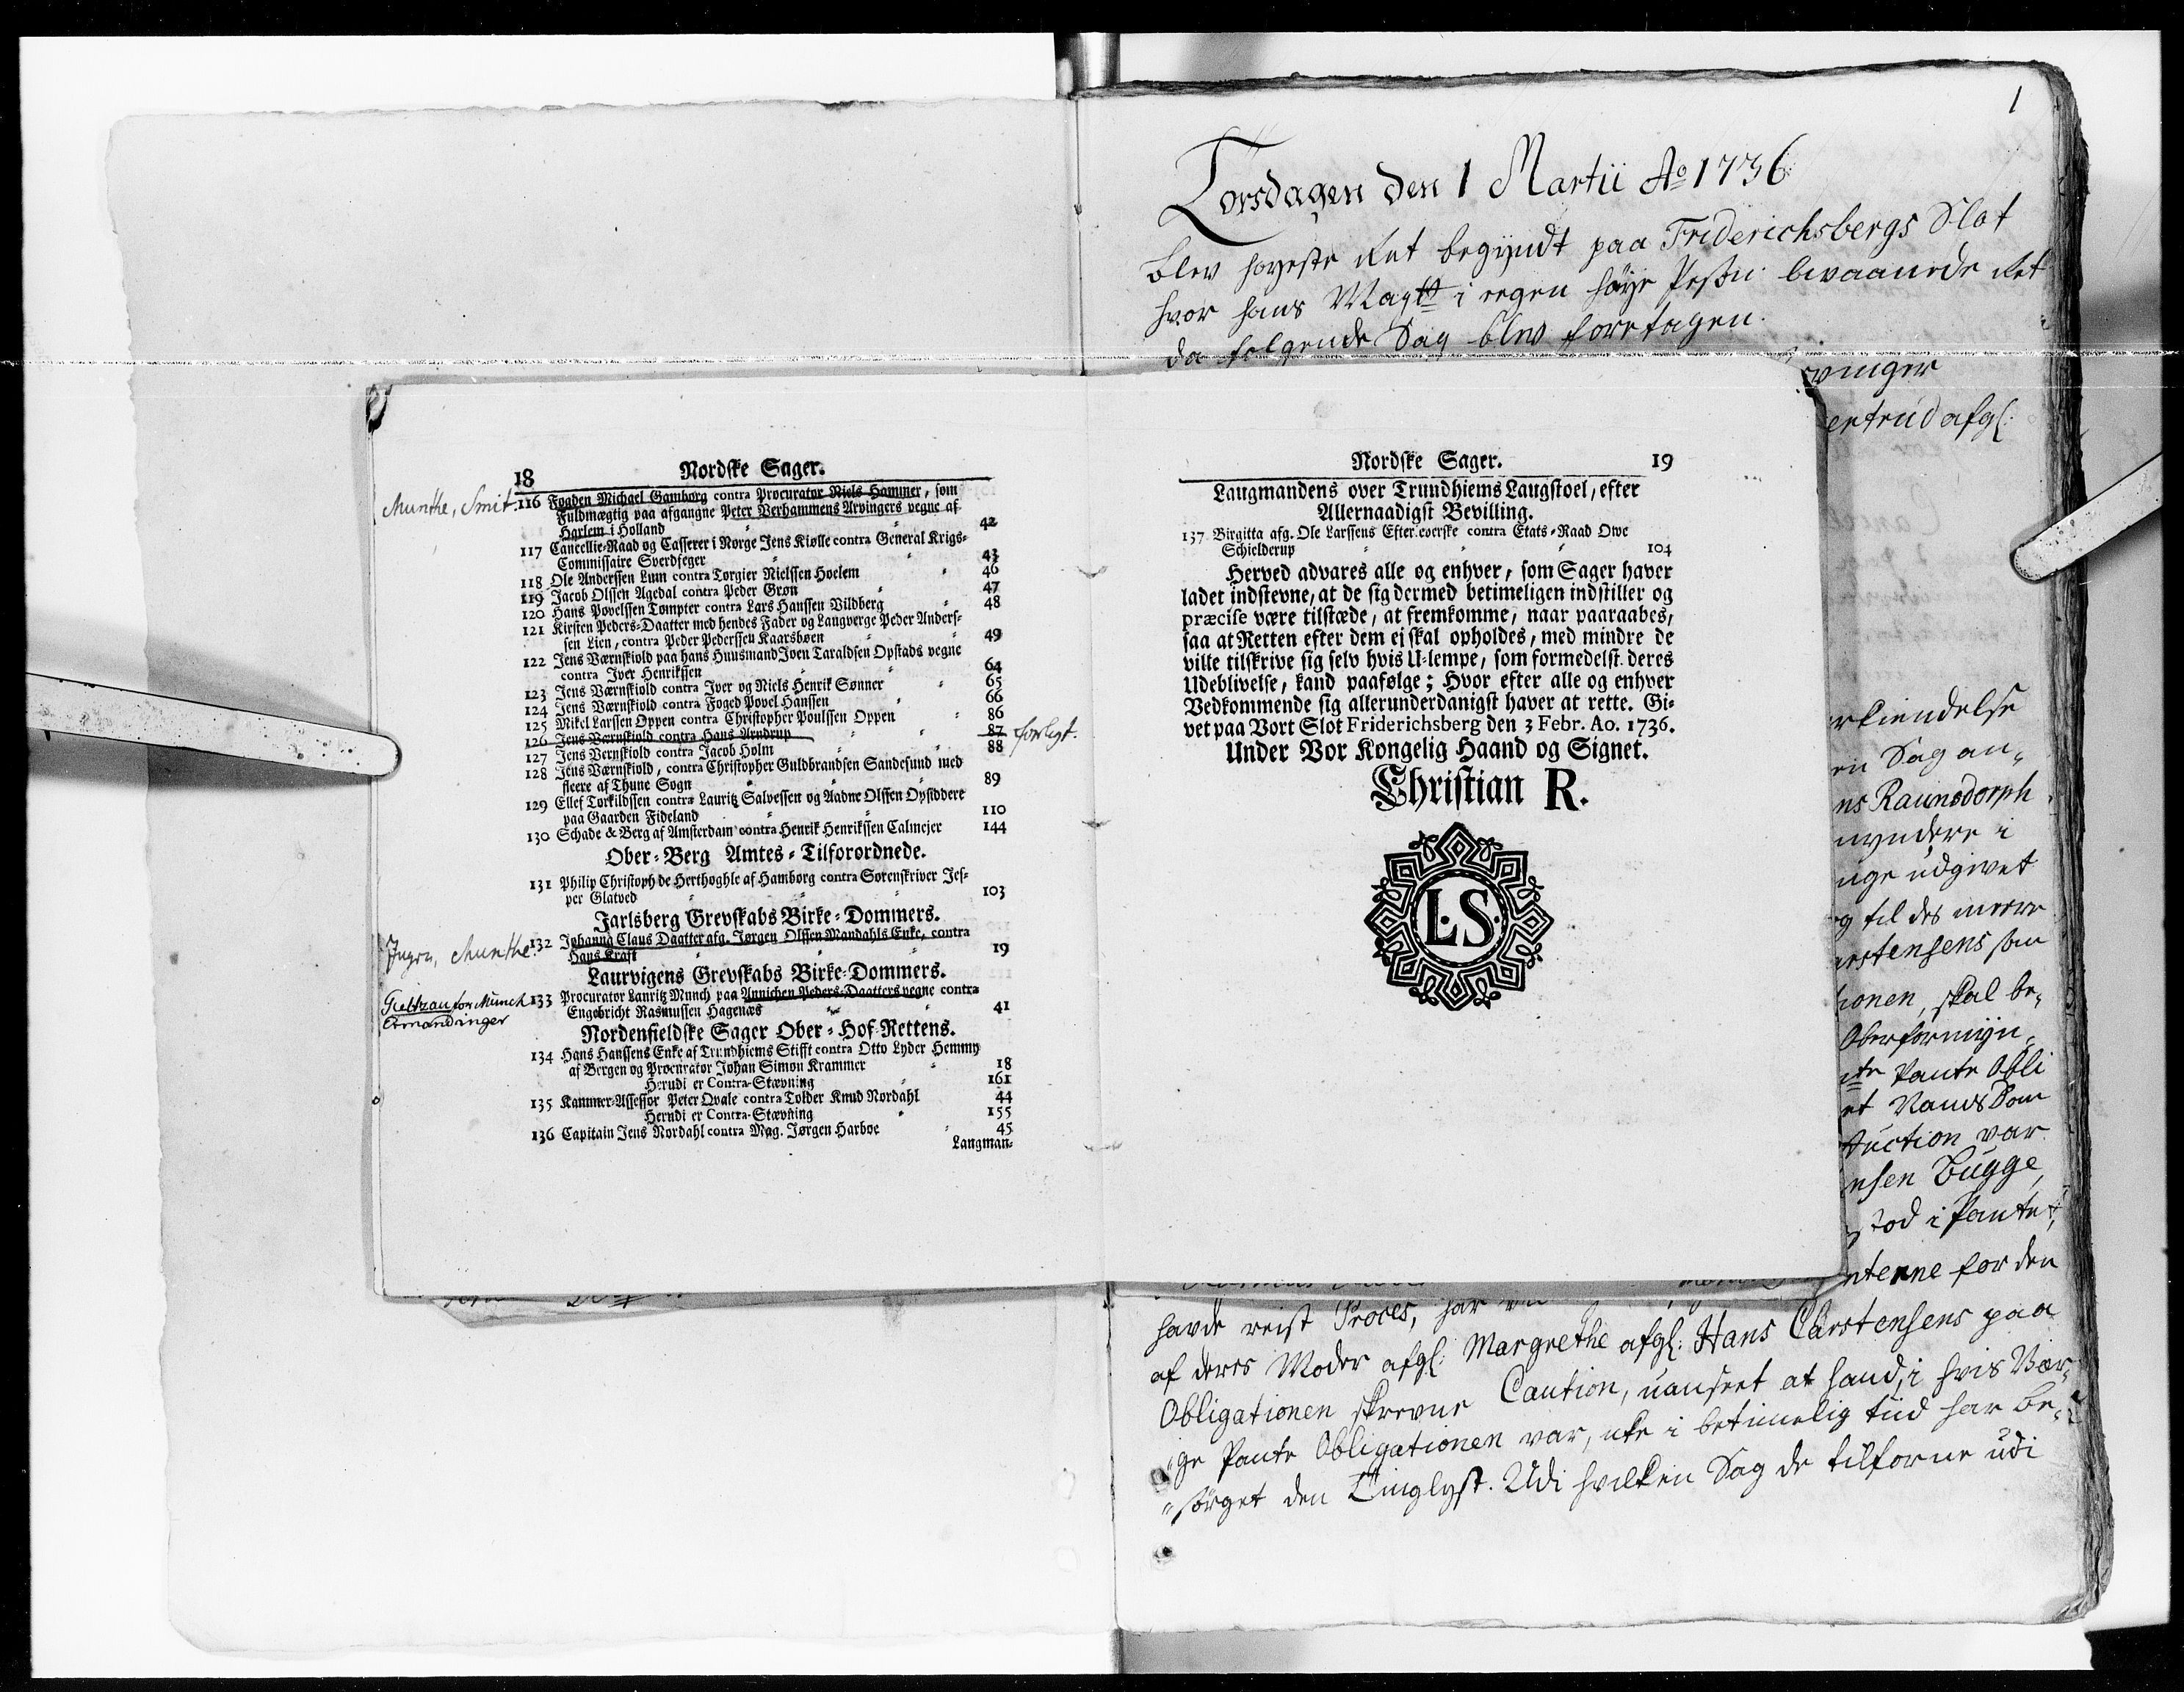 18 Nordske Sager.
Munthe, Smit. 116 Fogden Michael Gamborg contra Procurator Niels Hammer, som
Fuldmægtig paa afgangne Peter Verhammens Arvingers vegne af
Harlem i Holland " " 42
117 Cancellie-Raad og Casserer i Norge Jens Kiølle contra General Krigs-
Commissaire Sverdfeger " " 43
118 Ole Anderssen Lum contra Torgier Nielssen Hoelem " 46
119 Jacob Olssen Agedal contra Peder Grøn " 47
120 Hans Povelssen Tømpter contra Lars Hanssen Vildberg " 48
121 Kirsten Peders-Daatter med hendes Fader og Laugverge Peder Anders-
sen Lien, contra Peder Pederssen Kaarsbøen " " 49
122 Jens Værnskiold paa hans Huusmand Joen Taraldsen Opstads vegne
contra Iver Henrikssen " " 64
123 Jens Værnskiold contra Iver og Niels Henrik Sønner " 65
124 Jens Værnskiold contra Foged Povel Hanssen " 66
125 Mikel Larssen Oppen contra Christopher Poulssen Oppen " 86
126 Jens Værnskiold contra Hans Arndrup " " 87 forligt.
127 Jens Vernskiold contra Jacob Holm " " 88
128 Jens Værnskiold, contra Christopher Guldbrandsen Sandesund med
fleere af Thune Sogn " " " 89
129 Ellef Torkildssen contra Lauritz Salvessen og Aadne Olssen Opsiddere
paa Gaarden Fideland " " 110
130 Schade & Berg af Amsterdam contra Henrik Henrikssen Calmejer 144
Ober-Berg Amtes-Tilforordnede.
131 Philip Christoph de Herthoghle af Hamborg contra Sorenskriver Jes-
per Glatved " " 103
Jarlsberg Grevskabs Birke-Dommers.
Munthe. 132 Johanna Claus Daatter afg. Jørgen Olssen Mandahls Enke, contra
Hans Kraft " " " 19
Laurvigens Grevskabs Birke-Dommers.
for Munch 133 Procurator Lauritz Munch paa Annichen Peders-Daatters vegne contra
Engebricht Rasmussen Hagenæs " " 41
Nordenfieldske Sager Ober-Hof-Rettens.
134 Hans Hanssens Enke af Trundhiems Stifft contra Otto Lyder Hemmy
af Bergen og Procurator Johan Simon Krammer " 18
Herudi er Contra-Stævning " 161
135 Kammer-Assessor Peter Qvale contra Tolder Knud Nordahl 44
Herudi er Contra-Stævning " 155
136 Capitain Jens Nordahl contra Mag. Jørgen Harboe " 45
Langman-
Nordske Sager. 19
Laugmandens over Trundhiems Laugstoel, efter
Allernaadigst Bevilling.
137 Birgitta afg. Ole Larssens Efterleverske contra Etats-Raad Owe
Schielderup " " " 104
Herved advares alle og enhver, som Sager haver
ladet indstevne, at de sig dermed betimeligen indstiller og
præcise være tilstæde, at fremkomme, naar paaraabes,
saa at Retten efter dem ej skal opholdes, med mindre de
ville tilskrive sig selv hvis U-lempe, som formedelst deres
Udeblivelse, kand paafølge; Hvor efter alle og enhver
Vedkommende sig allerunderdanigst haver at rette. Gi-
vet paa Vort Slot Friderichsberg den 3 Febr. Ao. 1736.
Under Vor Kongelig Haand og Signet.
Christian R.
L.S.
1
Torsdagen den 1 Martii Ao 1736
blev høyeste Ret begyndt paa Friderichsbergs Slot
hvor hans Maytt i egen høye bevaanede Ret
da følgende Sag blev foretagen.
vinger
ertrud afgl:
rkiendelse
en Sag an-
ns Raunsdorph
myndere i
uge udgivet
g til des meere
arstensens som
ionen, skal be-
Oberformyn-
Pante Obli
et Navns Dom
Auction var
nsen Bugge,
stod i Pantet,
nterne for den
havde reist Proces, har
af deres Moder afgl: Margrethe afgl: Hans Carstensens paa
Obligationen skrevne Caution, uanseet at hand, i hvis Vær-
ge Pante Obligationen var, ike i betimelig tiid har be-
sørget den Tinglyst. Udi hvilken Sag de tilforne udi